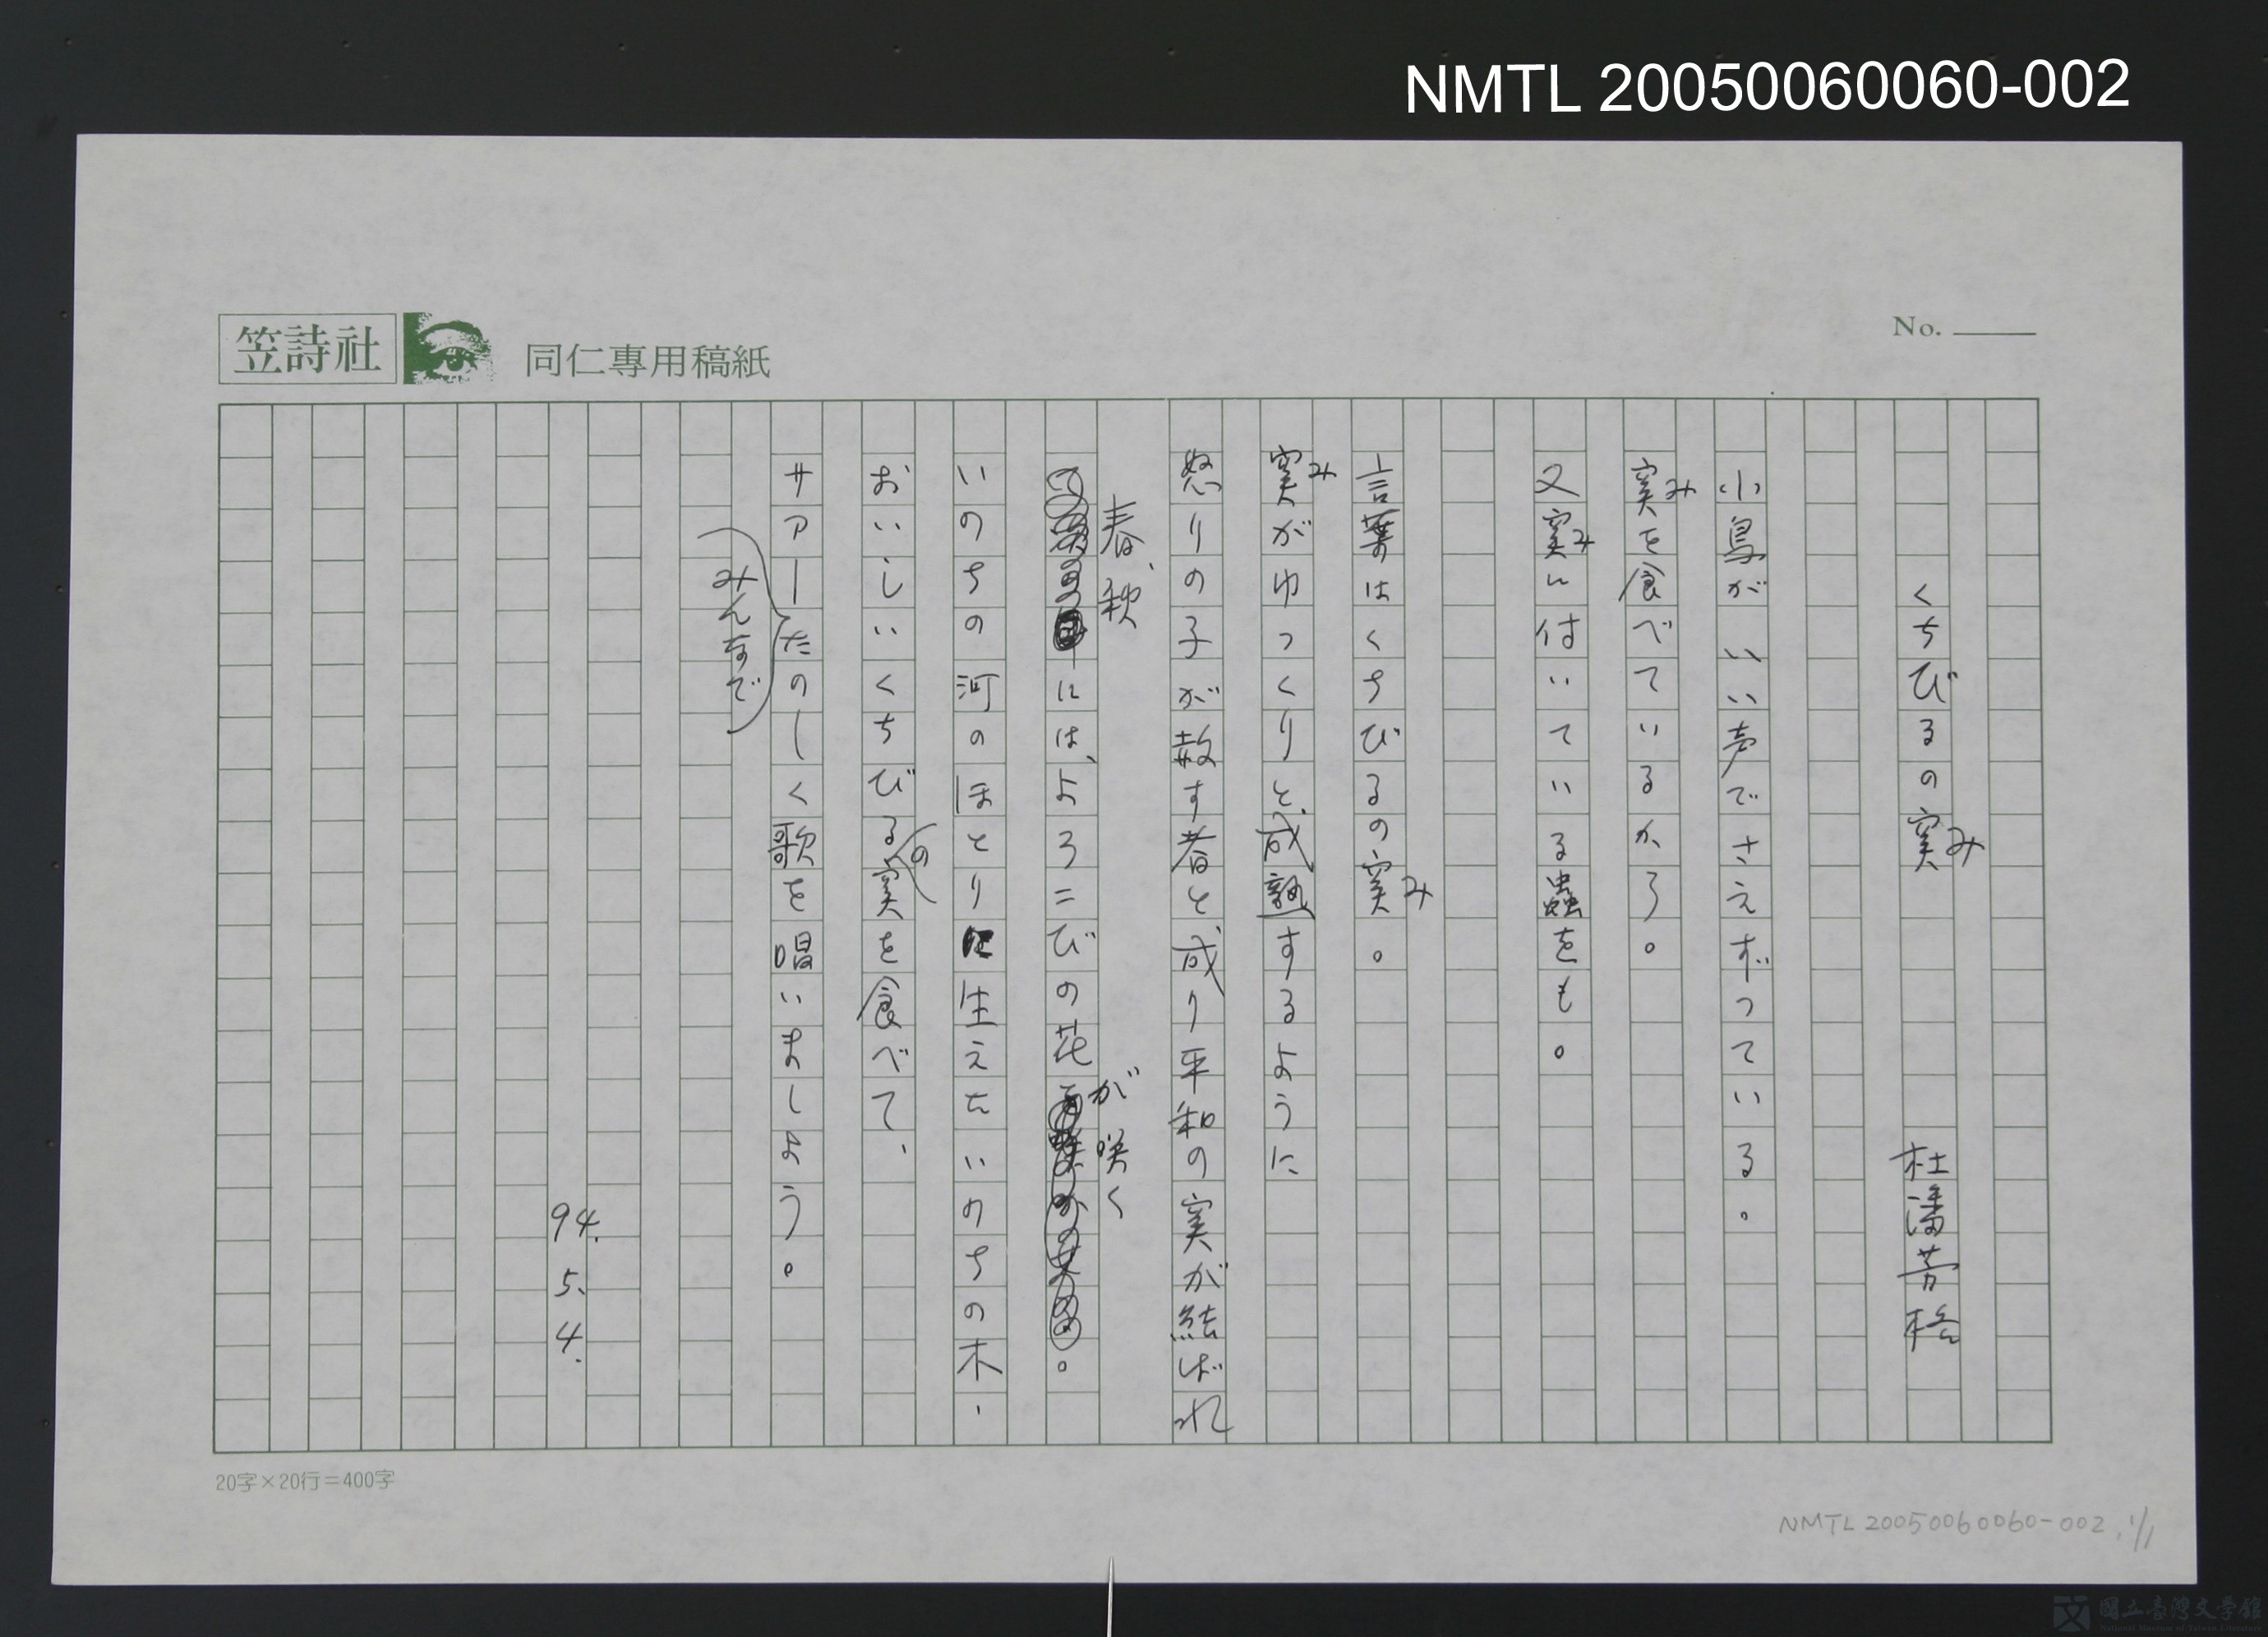 NMTL 20050060060-002
笠詩社 同仁專用稿紙
No.
くちびるの実み 杜潘芳格
小鳥がいい声でさえずっている。
実みを食べているから。
又実みに付いている蟲をも。
言葉はくちびるの実み。
実みがゆっくりと、成熟するように
怒りの子が赦す者と成り平和の実が結ばれ
春、秋には、よろこびの花が咲く。
いのちの河のほとりに生えたいのちの木、
おいしいくちびるの実を食べて、
サァーたのしく歌を唱いましょう。
みんなで
94.5.4.
20字×20行=400字
NMTL 20050060060-002, 1/1
國立臺灣文学館
National Museum of Taiwan Literature